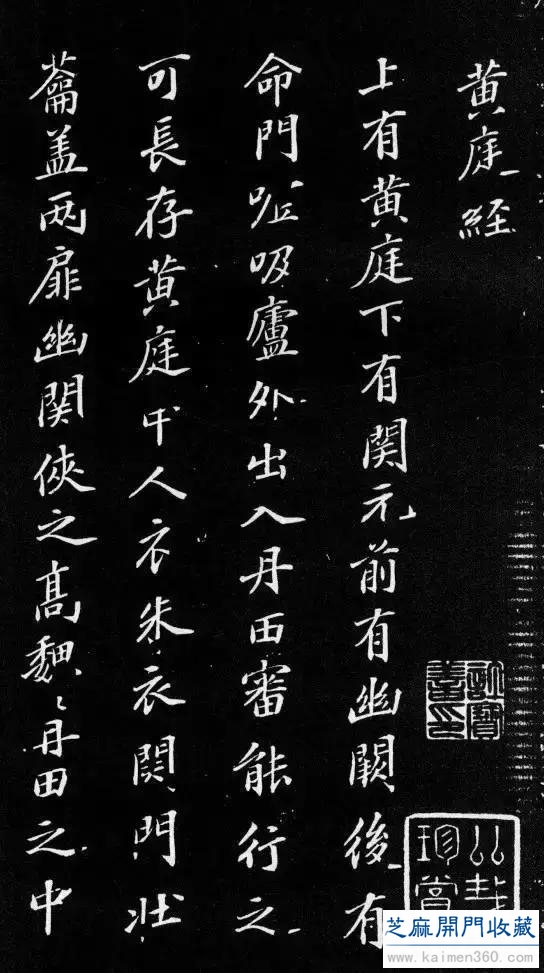 黄庭経
上有黄庭下有関元前有幽闕後有
命門呼吸廬外出入丹田審能行之
可長存黄庭中人衣朱衣関門壮
蘥盖两扉幽関侠之高巍〻丹田之中
芝麻開門收藏
www.kaimen360.com